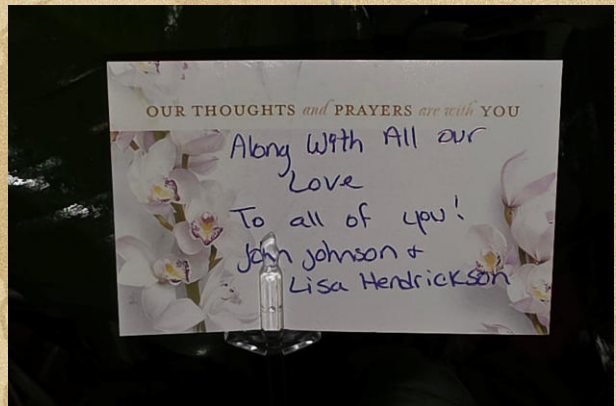 OUR THOUGHTS and PRAYERS are with YOU
Along With All our
Love
To all of you!
John Johnson +
Lisa Hendrickson